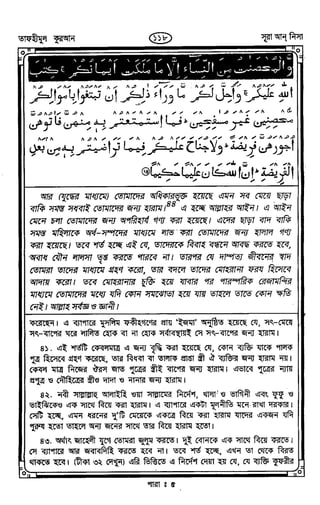 তাফহীমুল কুরআন
১১৮
সূরা আন্ নিসা
والمحصنت من النساء الا ما ملكت ايمانكم كتب
الله عليكم واحل لكم ما وراء ذلكم ان تبتغوا باموالكم
محصنين غير مسفحين فما استمتعتم به منهن فاتوهن
اجورهن فريضة ولا جناح عليكم فيما ترضيتم به من بعد
الفريضة ان الله كان عليما حكيما
আর (যুদ্ধের মাধ্যমে) তোমাদের অধিকারভুক্ত হয়েছে এমন সব মেয়ে ছাড়া
বাকি সমস্ত সধবাই তোমাদের জন্য হারাম।৪৪ এ হচ্ছে আল্লাহর আইন। এ আইন
মেনে চলা তোমাদের জন্য অপরিহার্য গণ্য করা হয়েছে। এদের ছাড়া বাদ বাকি
সমস্ত মহিলাকে অর্থ-সম্পদের মাধ্যমে লাভ করা তোমাদের জন্য হালাল গণ্য
করা হয়েছে। তবে শর্ত হচ্ছে এই যে, তাদেরকে বিবাহ বন্ধনে আবদ্ধ করতে হবে,
অবাধ যৌন লালসা তৃপ্ত করতে পারবে না। তারপর যে দাম্পত্য জীবনের স্বাদ
তোমরা তাদের মাধ্যমে গ্রহণ করো, তার বদলে তাদের মোহরানা ফরয হিসেবে
আদায় করো। তবে মোহরানার চুক্তি হয়ে যাবার পর পারস্পরিক রেজামন্দির
মাধ্যমে তোমাদের মধ্যে যদি কোন সমঝোতা হয়ে যায় তাহলে তাতে কোন ক্ষতি
নেই। আল্লাহ সর্বজ্ঞ ও জ্ঞানী।
করেছেন। এ ব্যাপারে মুসলিম ফকীহগণের প্রায় 'ইজমা' অনুষ্ঠিত হয়েছে যে, সৎ-মেয়ে
সৎ-বাপের ঘরে লালিত হোক বা না হোক সর্বাবস্থায়ই সে সৎ-বাপের জন্য হারাম।
৪১. এই শর্তটি কেবলমাত্র এ জন্য বৃদ্ধি করা হয়েছে যে, কোন ব্যক্তি যাকে পালক
পুত্র হিসেবে গ্রহণ করেছে, তার বিধবা বা তালাক প্রাপ্তা স্ত্রী ঐ ব্যক্তির জন্য হারাম নয়।
কেবল মাত্র নিজের ঔরস জাত পুত্রের স্ত্রীই বাপের জন্য হারাম। এভাবে পুত্রের ন্যায়
প্রপুত্র ও দৌহিত্রের স্ত্রীও দাদা ও নানার জন্য হারাম।
৪২. নবী সাল্লাল্লাহু আলাইহি ওয়া সাল্লামের নির্দেশ, খালা ও ভাগিনী এবং ফুফু ও
ভাইঝিকেও এক সাথে বিয়ে করা হারাম। এ ব্যাপারে একটা মূলনীতি মনে রাখা দরকার।
সেটি হচ্ছে, এমন ধরনের দু'টি মেয়েকে একত্রে বিয়ে করা হারাম যাদের একজন যদি
পুরুষ হতো তাহলে অন্য জনের সাথে তার বিয়ে হারাম হতো।
৪৩. অর্থাৎ জাহেলী যুগে তোমরা জুলুম করতে। দুই বোনকে এক সাথে বিয়ে করতে।
সে ব্যাপারে আর জবাবদিহি করতে হবে না। তবে শর্ত হচ্ছে, এখন তা থেকে বিরত
থাকতে হবে। (টীকা ৩২ দেখুন) এরি ভিত্তিতে এ নির্দেশ দেয়া হয় যে, যে ব্যক্তি কুফরীর
পারা : ৫